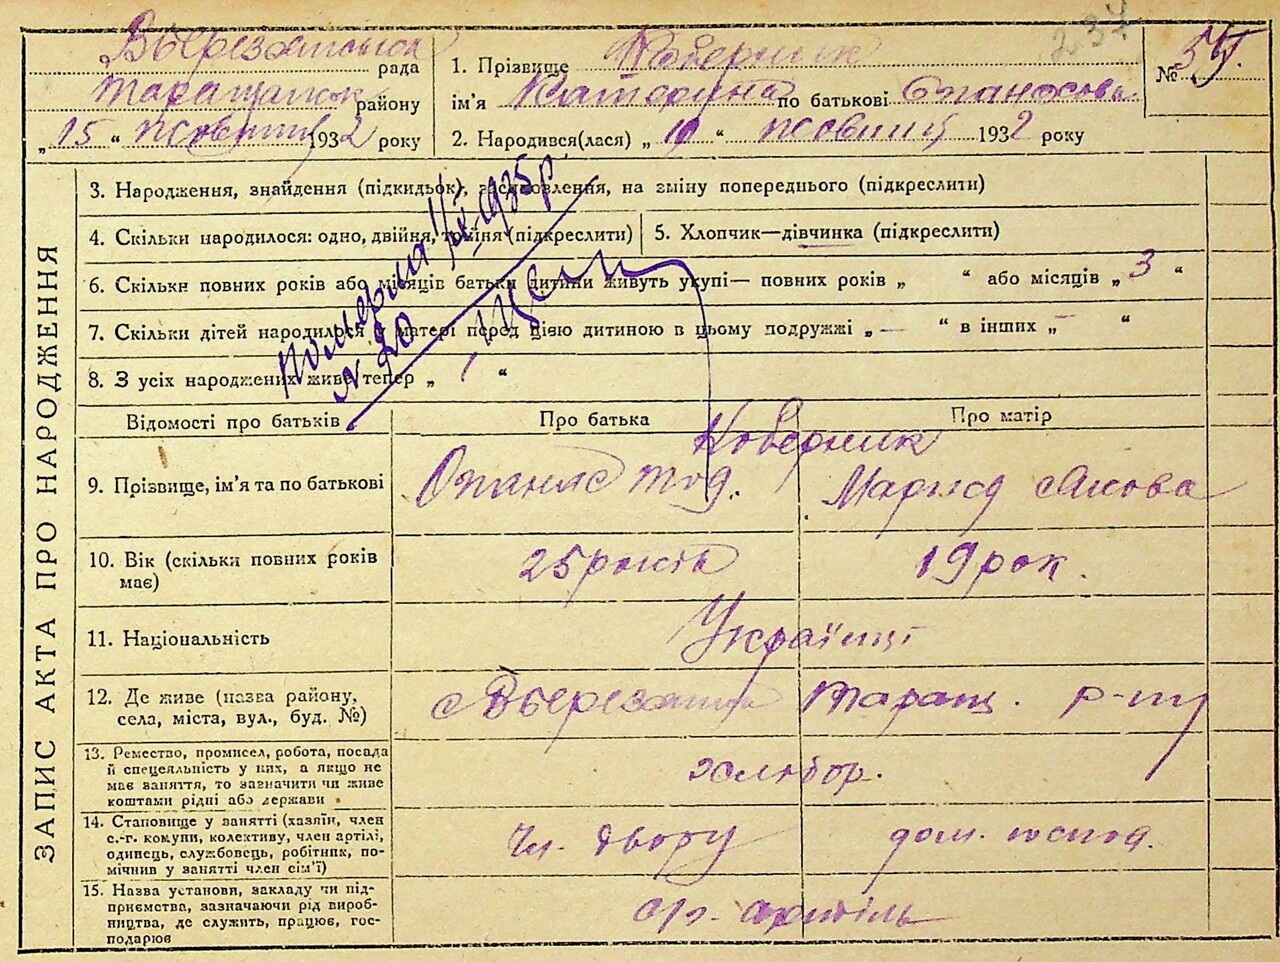 237
В Березянська рада
Таращанськ. району
„ 15 “ жовтня 1932 року
1. Прізвище Коверник
ім'я Катерина по батькові Опанасова
2. Народився(лася) „ 10 “ жовтня 1932 року
№
ЗАПИС АКТА ПРО НАРОДЖЕННЯ
3. Народження, знайдення (підкидьок), усиновлення, на зміну попереднього (підкреслити)
4. Скільки народилося: одно, двійня, трійня (підкреслити)
5. Хлопчик—дівчинка (підкреслити)
6. Скільки повних років або місяців батьки дитини живуть укупі— повних років „ “ або місяців „ 3 “
7. Скільки дітей народилося у матері перед цією дитиною в цьому подружжі „ — “ в інших „ — “
8. З усіх народжених живе тепер „ 1 “
Померла 1935 р.
N 20
Відомості про батьків
Про батька
Про матір
Коверник
9. Прізвище, ім'я та по батькові
Опанас Тод.
Марися Якова
10. Вік (скільки повних років має)
25 років
19 рок.
11. Національність
Українці
12. Де живе (назва району,
села, міста, вул., буд. №)
с В Березянка Таращ. р-ну
13. Ремество, промисел, робота, посада
й спецеяльність у них, а якщо не
має заняття, то зазначити чи живе
коштами рідні або держави
хлібор.
14. Становище у занятті (хазяїн, член
с.-г. комуни, колективу, член артілі,
одинець, службовець, робітник, по-
мічнив у занятті член сім'ї)
Чл. двору
дом. господ.
15. Назва установи, закладу чи під-
приємства, зазначаючи рід вироб-
ництва, де служить, працює, гос-
подарює
с/г. артіль